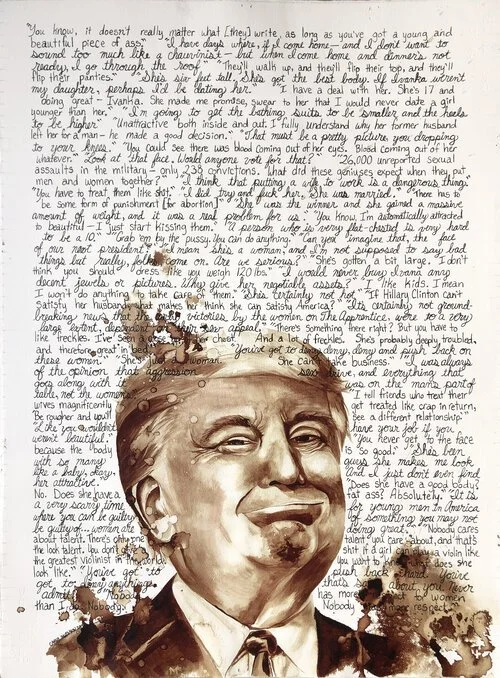 "You know, it doesn't really matter what [they] write, as long as you've got a young and
beautiful piece of ass." "I have days where, if I come home—and I don't want to
sound too much like a chauvinist—but when I come home and dinner's not
ready, I go through the roof." "They'll walk up, and they'll flip their top, and they'll
flip their panties." "She's six feet tall, She's got the best body. If Ivanka weren't
my daughter, perhaps I'd be dating her." "I have a deal with her. She's 17 and
doing great—Ivanka. She made me promise, swear to her that I would never date a girl
younger than her." "I'm going to get the bathing suits to be smaller and the heels
to be higher." "Unattractive both inside and out. I fully understand why her former husband
left her for a man—he made a good decision." "That must be a pretty picture, you dropping
to your knees." "You could see there was blood coming out of her eyes. Blood coming out of her
whatever." "Look at that face. Would anyone vote for that?" "26,000 unreported sexual
assaults in the military—only 238 convictions. What did these geniuses expect when they put
men and women together?" "I think that putting a wife to work is a dangerous thing."
"You have to treat them like shit." "I did try and fuck her. She was married." "There has to
be some form of punishment [for abortion]." "She was the winner and she gained a massive
amount of weight, and it was a real problem for us." "You know I'm automatically attracted
to beautiful—I just start kissing them." "A person who is very flat-chested is very hard
to be a 10." "Grab 'em by the pussy. You can do anything." "Can you imagine that, the face
of our next president? I mean, she's a woman, and I'm not supposed to say bad
things but really, folks, come on. Are we serious?" "She's gotten a bit large. I don't
think you should dress like you weigh 120 lbs." "I would never buy Ivana any
decent jewels or pictures. Why give her negotiable assets?" "I like kids. I mean
I won't do anything to take care of them." "She's certainly not hot." "If Hillary Clinton can't
satisfy her husband what makes her think she can satisfy America?" "It's certainly not ground-
breaking news that the victories by the women on The Apprentice, were to a very
large extent, dependent sex appeal. "There's something there right? But you have to
like freckles. I've seen a chest. And a lot of freckles. She's probably deeply troubled,
and therefore great in woman. You've got to deny, deny, deny and push back on
these women." "She's She Can't business." "I was always
of the opinion that aggression sex drive, and everything that
goes along with it was on the man's part of
table, not the women's "I tell friends who treat their
wives magnificently get treated like crap in return,
Be rougher and you'll see a different relationship."
"Like you wouldn't have your job if you
weren't beautiful." "You never get to the face
because the body is so good." "She's been
with so many guys she makes me look
like a baby. Okay, And I just don't even find
her attractive. "Does she have a good body?
No. Does she have a fat ass? Absolutely." "It is
a very scary time for young men in America
where you can be guilty of something you may not
be guilty of... women are doing great." "Nobody cares
about talent. There's only one talent you care about, and that's
the look talent. You don't shit if a girl can play a violin like
the greatest violinist in the world. You want to know what does she
look like." "You've got to push back hard. You've
got to deny anything that's about you. Never
admit." "Nobody has more respect to women
than I do. Nobody. Nobody has more respect."